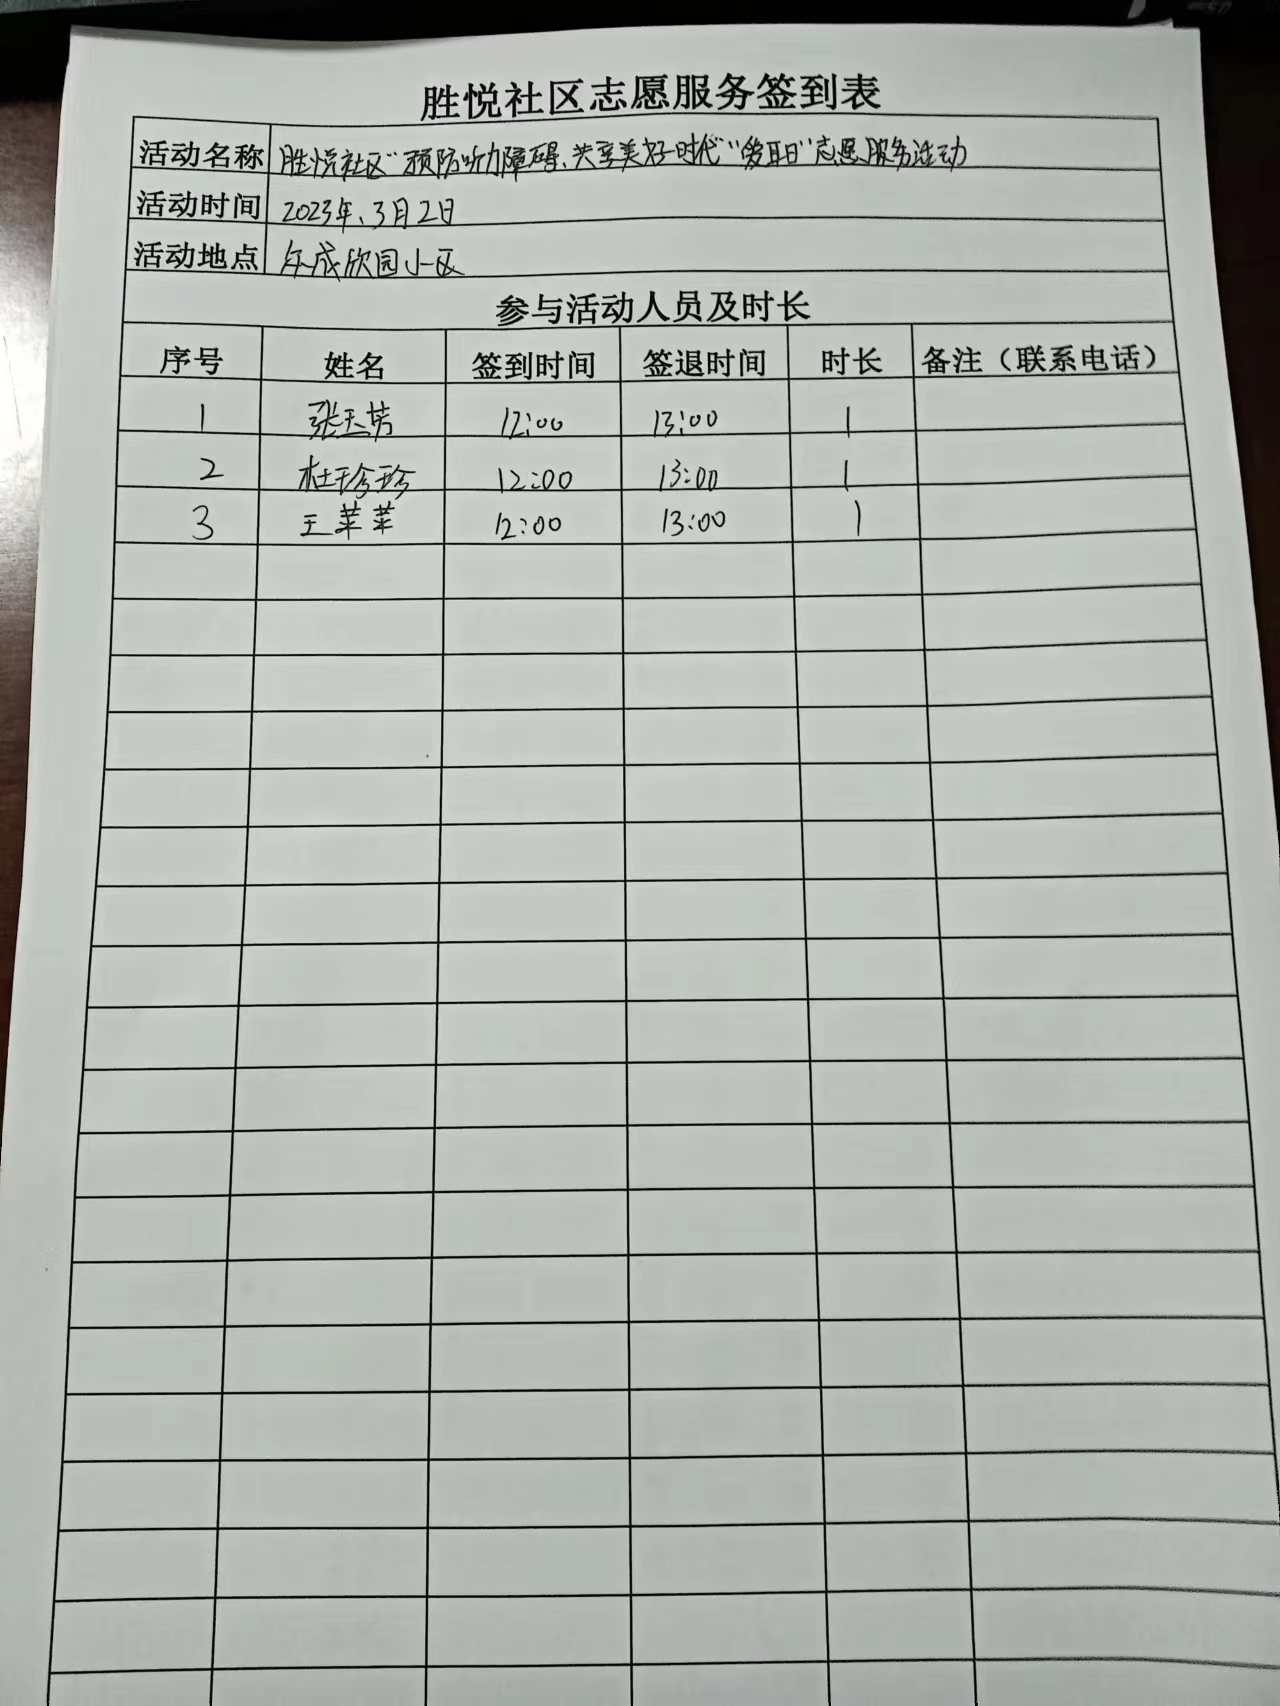 胜悦社区志愿服务签到表
活动名称 胜悦社区“预防听力障碍、共享美好时代”“爱耳日”志愿服务活动
活动时间 2023年、3月2日
活动地点 年成欣园小区
参与活动人员及时长
序号 姓名 签到时间 签退时间 时长 备注（联系电话）
1 张玉芳 12:00 13:00 1
2 杜珍珍 12:00 13:00 1
3 王苹苹 12:00 13:00 1